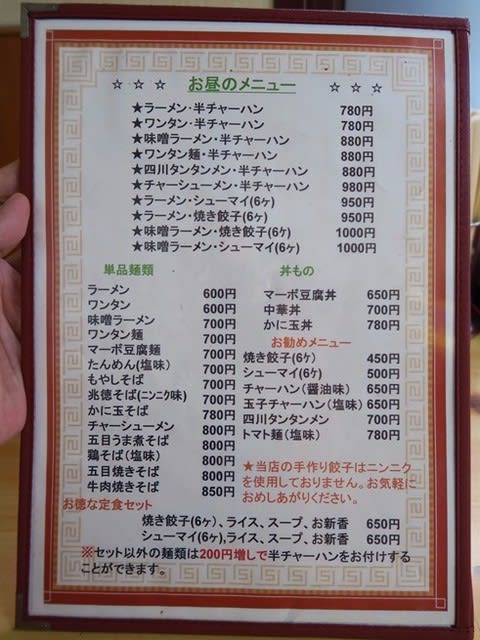 ☆ ☆ ☆ お昼のメニュー ☆ ☆ ☆
★ラーメン・半チャーハン 780円
★ワンタン・半チャーハン 780円
★味噌ラーメン・半チャーハン 880円
★ワンタン麺・半チャーハン 880円
★四川タンタンメン・半チャーハン 880円
★チャーシューメン・半チャーハン 980円
★ラーメン・シューマイ(6ヶ) 950円
★ラーメン・焼き餃子(6ヶ) 950円
★味噌ラーメン・焼き餃子(6ヶ) 1000円
★味噌ラーメン・シューマイ(6ヶ) 1000円
単品麺類
ラーメン 600円
ワンタン 600円
味噌ラーメン 700円
ワンタン麺 700円
マーボ豆腐麺 700円
たんめん(塩味) 700円
もやしそば 700円
兆徳そば(ﾆﾝﾆｸ味) 700円
かに玉そば 780円
チャーシューメン 800円
五目うま煮そば 800円
鶏そば(塩味) 800円
五目焼きそば 800円
牛肉焼きそば 850円
丼もの
マーボ豆腐丼 650円
中華丼 700円
かに玉丼 780円
お勧めメニュー
焼き餃子(6ヶ) 450円
シューマイ(6ヶ) 500円
チャーハン(醤油味) 650円
玉子チャーハン(塩味) 650円
四川タンタンメン 700円
トマト麺(塩味) 780円
★当店の手作り餃子はニンニク
を使用しておりません。お気軽に
おめしあがりください。
お徳な定食セット
焼き餃子(6ヶ)、ライス、スープ、お新香 650円
シューマイ(6ヶ),ライス、スープ、お新香 650円
※セット以外の麺類は200円増しで半チャーハンをお付けする
ことができます。